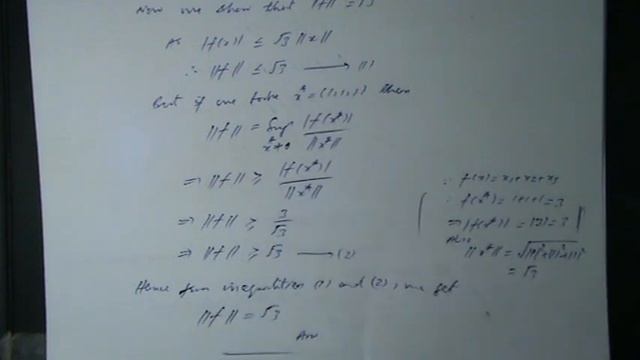 Now we show that ||f|| = √3
As |f(x)| ≤ √3 ||x||
∴ ||f|| ≤ √3 ⟶ (1)
But if we take x* = (1,1,1) then
||f|| = Sup |f(x*)| / ||x*||
x* ≠ 0
⇒ ||f|| ≥ |f(x*)| / ||x*||
⇒ ||f|| ≥ 3/√3
⇒ ||f|| ≥ √3 ⟶ (2)
∵ f(x) = x1+x2+x3
∴ f(x*) = 1+1+1 = 3
⇒ |f(x*)| = |3| = 3
Also
||x*|| = √(|1|²+|1|²+|1|²)
= √3
Hence from inequalities (1) and (2), we get
||f|| = √3
Ans